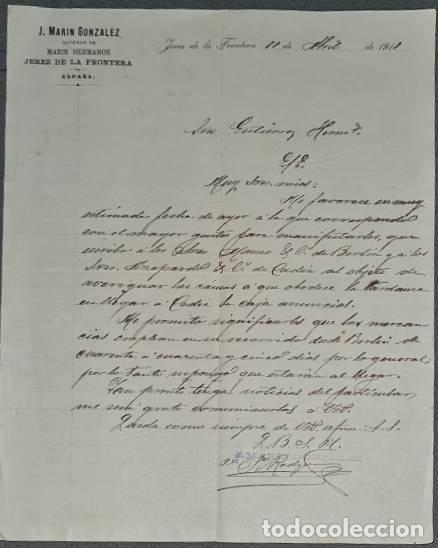 J. MARIN GONZALEZ
SUCESOR DE
MARIN HERMANOS
JEREZ DE LA FRONTERA
ESPAÑA.
Jerez de la Frontera 11 de Abril de 1918
Sres. Gutierrez Hermos.
C/E.
Muy Sres. mios:
Me favorece su muy
estimada fecha de ayer á la que correspondo
con el mayor gusto para manifestarles, que
escribo á los Sres. & Cª. de Berlin y á los
Sres. & Cª. de Cadiz al objeto de
averiguar las causas á que obedece la tardanza
en llegar á Cadiz la caja anuncios.
Me permito significarles que las mercan-
cias emplean en su recorrido desde Berlin
cuarenta á cuarenta y cinco dias por lo general,
por lo tanto supongo que estarán al llegar.
Tan pronto tenga noticias del particular,
me será grato comunicarlas á Vds.
Queda como siempre de Vds. afmo. S. S.
Q. B. S. M.
todocoleccion
todocoleccion.net